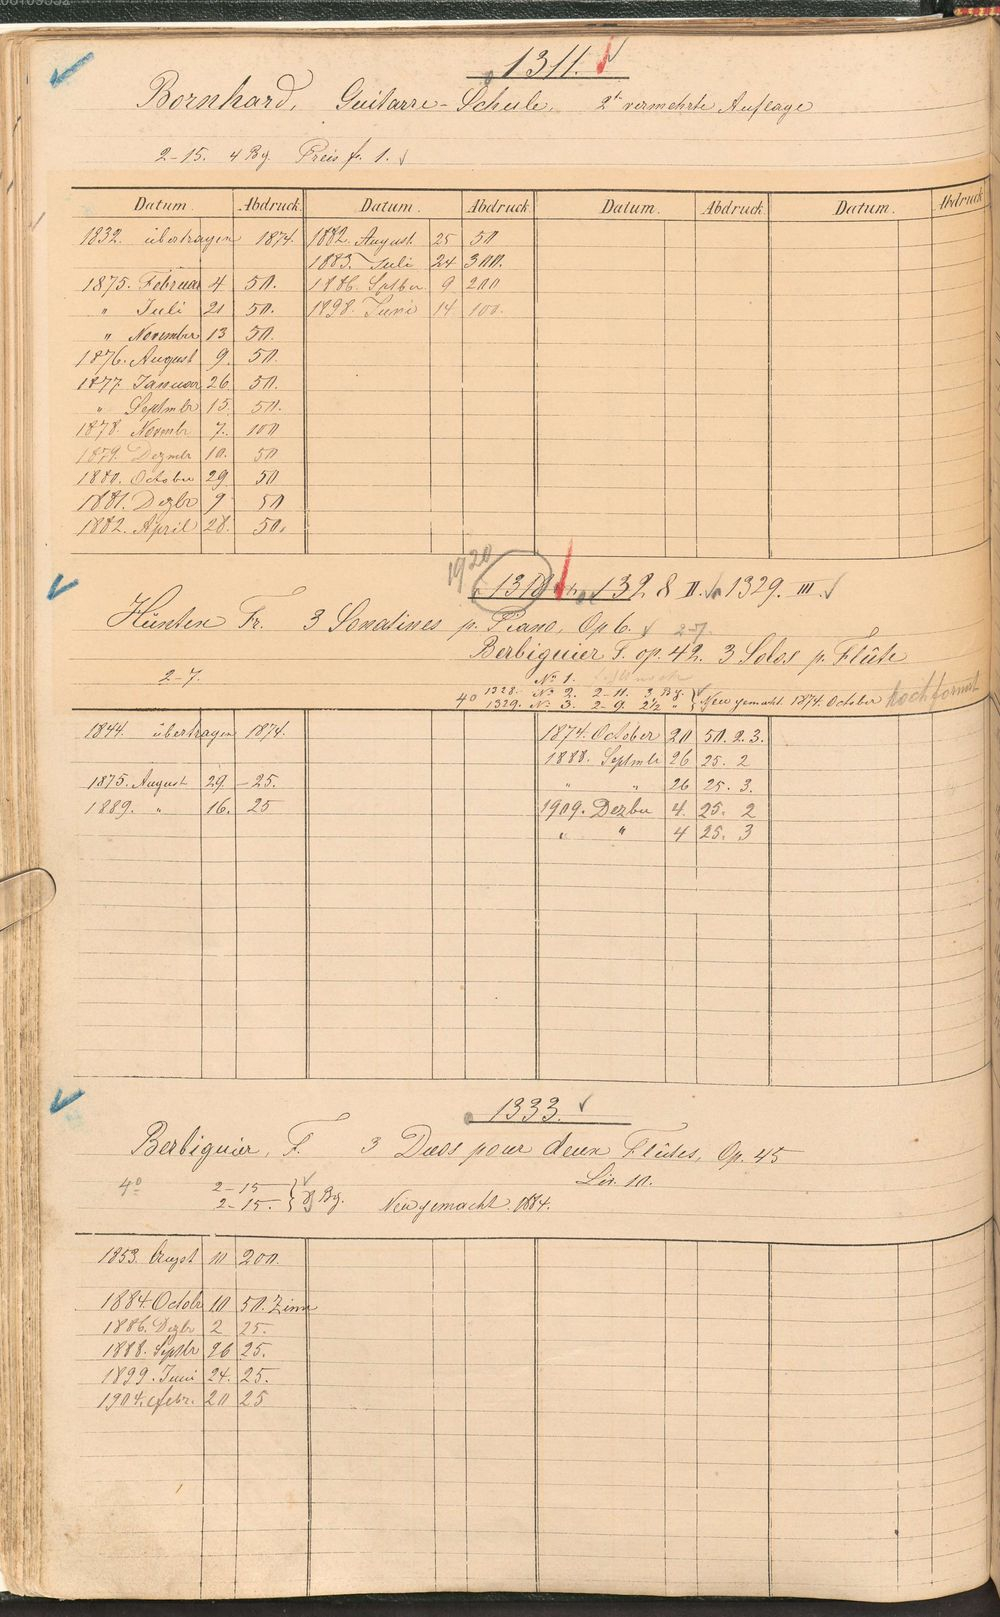 1311.
Bornhard, Guitarre-Schule, 2te vermehrte Auflage
2-15. 4 Bg. Preis fr. 1.
Datum. Abdruck. Datum. Abdruck. Datum. Abdruck. Datum. Abdruck.
1832. übertragen 1874. 1882. August 25 50
1883. Juli 24 300.
1875. Februar 4 50. 1886. Sptber 9 200
" Juli 21 50. 1898. Juni 14 100.
" November 13 50.
1876. August 9. 50.
1877. Januar 26. 50.
" Septmbr 15. 50.
1878. Novmbr 7. 100
1879. Dezmbr 10. 50
1880. October 29. 50
1881. Dezbr 9 50
1882. April 28. 50.
1920
1328 II. 1329. III.
Hünten Fr. 3 Sonatines p. Piano, Op 6. 2-7.
Berbiguier F. op. 42. 3 Solos p. Flûte
2-7. No 1.
40 1328. No 2. 2-11. 3 Bg.
1329. No 3. 2-9. 2½ " Neu gemacht 1874. October Hochformat
1844. übertragen 1874. 1874. October 20 50. 2. 3.
1888. Septmbr 26 25. 2
1875. August 29. -25. " " 26 25. 3.
1889. " 16. 25 1909. Dezber 4. 25. 2
" " 4 25. 3
1333.
Berbiguier, F. 3 Duos pour deux Flûtes, Op. 45
Liv. 10.
40 2-15
2-15. Bg. Neu gemacht. 1884.
1853. August 11 200.
1884. Octobr 10 50. Zinn
1886. Dezbr 2 25.
1888. Septbr 26 25.
1899. Juni 24. 25.
1904. febr. 20 25